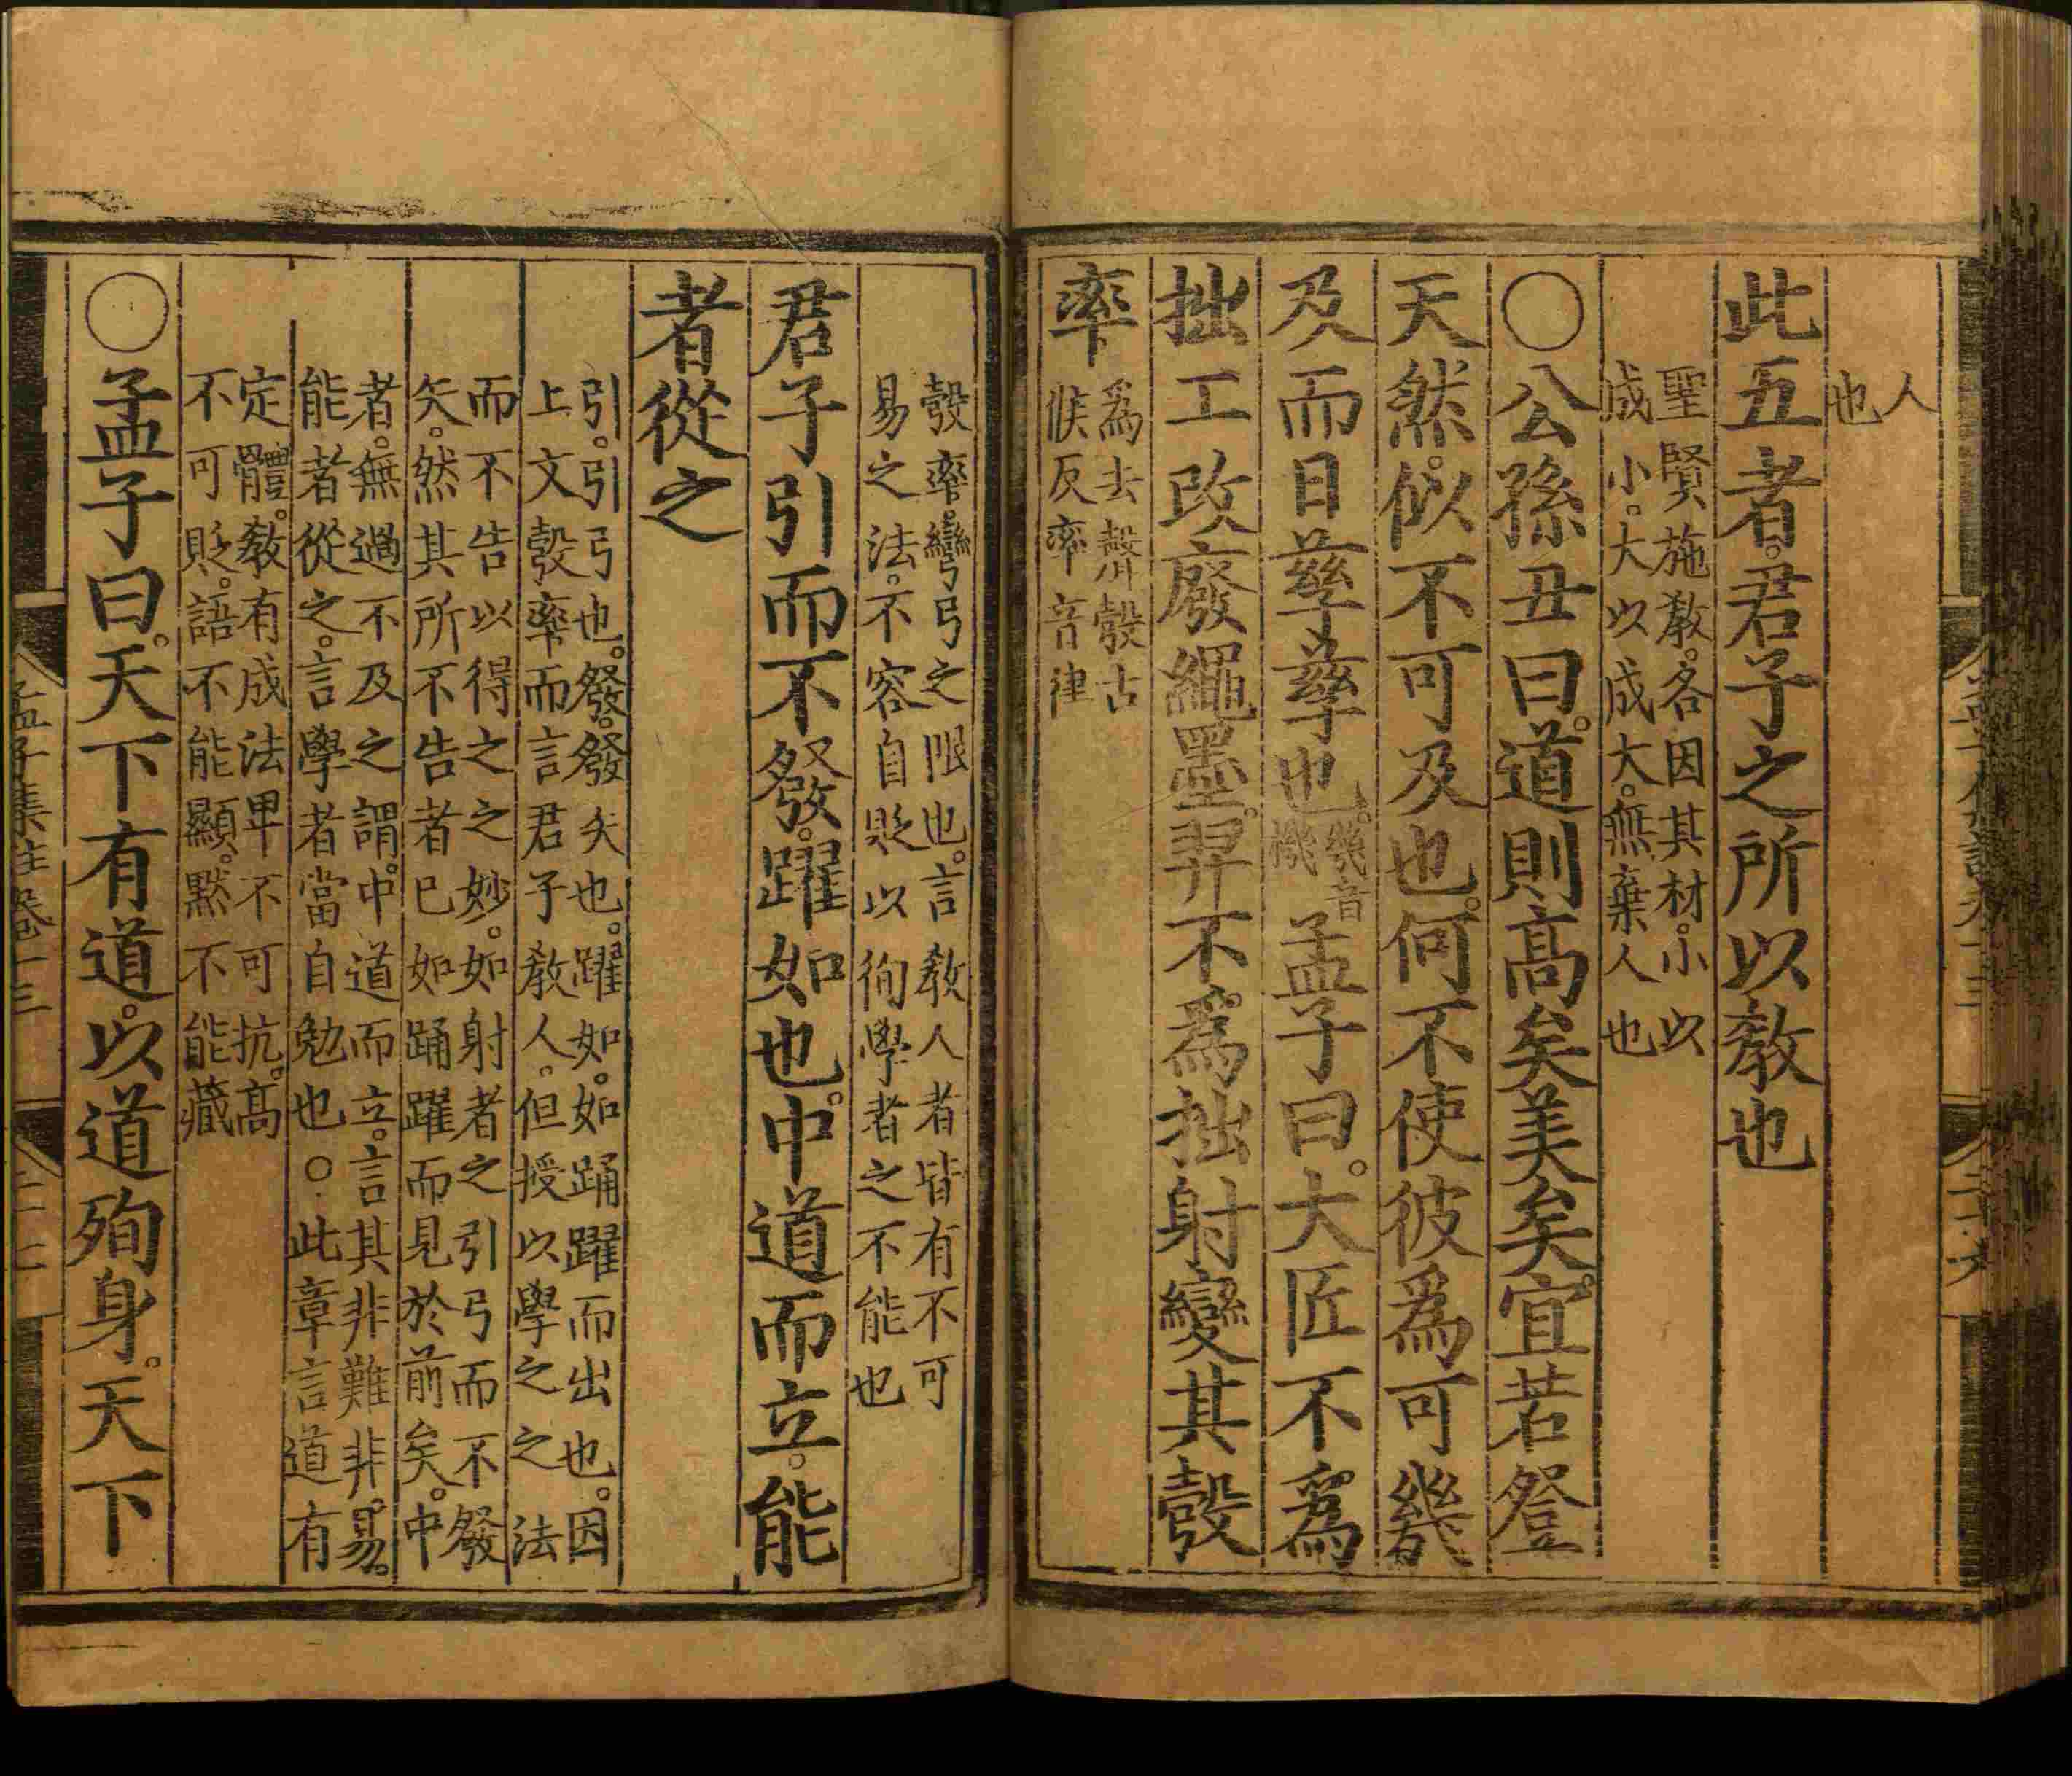 人
也
此五者。君子之所以教也
聖賢施教。各因其材。小以
成小。大以成大。無棄人也
○公孫丑曰。道則高矣美矣。宜若登
天然。似不可及也。何不使彼爲可幾
及而日孳孳也。幾音機孟子曰。大匠不爲
拙工改廢繩墨。羿不爲拙射變其彀
率爲去聲彀古
候反率音律
彀率。彎弓之限也。言教人者皆有不可
易之法。不容自貶以徇學者之不能也
君子引而不發。躍如也。中道而立。能
者從之
引。引弓也。發。發矢也。躍如。如踊躍而出也。因
上文彀率而言君子教人。但授以學之之法
而不告以得之之妙。如射者之引弓而不發
矢。然其所不告者已如踊躍而見於前矣。中
者。無過不及之謂。中道而立。言其非難非易。
能者從之。言學者當自勉也。○此章言道有
定體。教有成法。卑不可抗。高
不可貶。語不能顯。默不能藏
○孟子曰。天下有道。以道殉身。天下
孟子集註卷十三
二十七